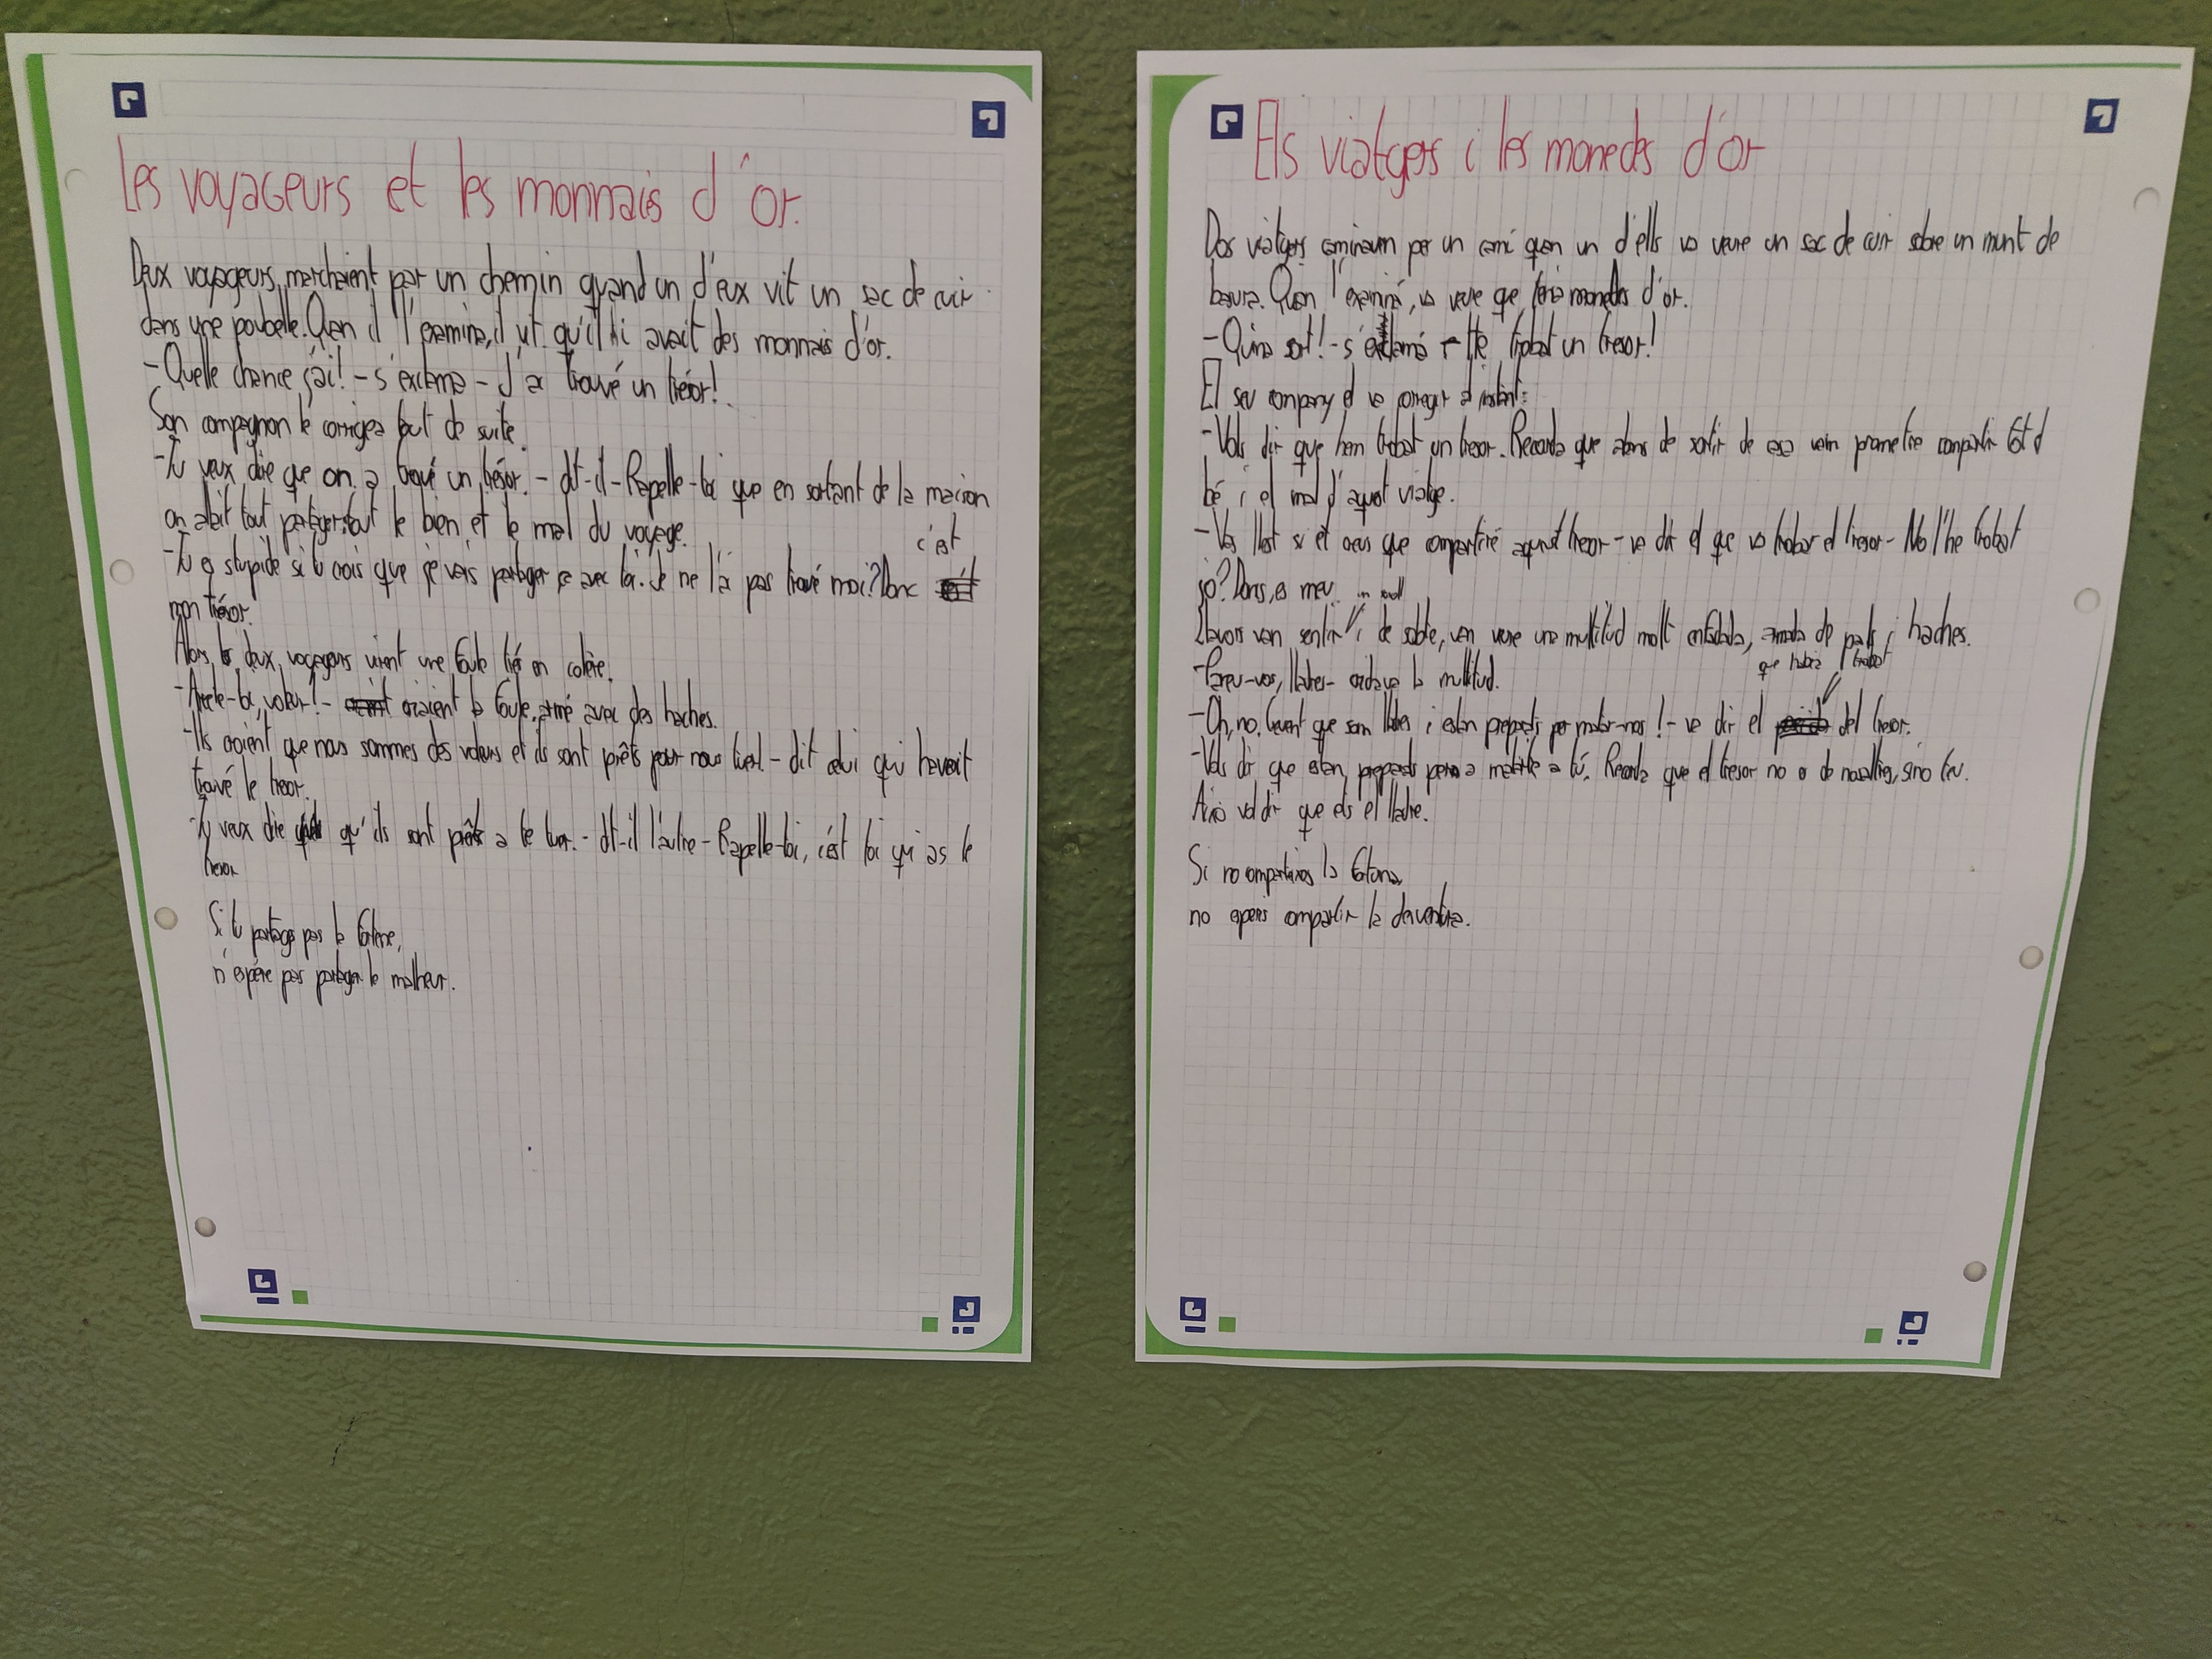 Les voyageurs et les monnais d'or.
Deux voyageurs marchaient par un chemin quand un d'eux vit un sac de cuir
dans une poubelle. Quan il l'examina, il vit qu'il hi avait des monnais d'or.
-Quelle chance j'ai! - s'exclama - J'a trouvé un trésor!
Son compagnon le corrigea tout de suite.
-Tu veux dire que on a trouvé un trésor. - dit-il - Rapelle-toi que en sortant de la maison
on allait tout partager, tout le bien et le mal du voyage.
-Tu es stupide si tu crois que je vais partager ça avec toi. Je ne l'a pas trouvé moi? Donc c'est
mon trésor.
Alors, les deux voyageurs virent une foule très en colère.
-Arrete-toi, voleur! - criaient la foule, armé avec des haches.
-Ils croient que nous sommes des voleurs et ils sont prêts pour nous tuer! - dit celui qui havait
trouvé le tresor.
-Tu veux dire qu'ils sont prêts a te tuer. - dit-il l'autre - Rapelle-toi, c'est toi qui as le
tresor.
Si tu partages pas la fortune,
n'espère pas partager le malheur.
Els viatgers i les monedes d'or
Dos viatgers caminaven per un camí quan un d'ells va veure un sac de cuir sobre un munt de
basura. Quan l'examiná, va veure que tenia monedes d'or.
-Quina sort! - s'exclamá - He trobat un tresor!
El seu company el va corregir a l'instant:
-Vols dir que hem trobat un tresor. Recorda que abans de sortir de casa vam prometre compartir tot el
bé i el mal d'aquest viatge.
-Vas llest si et creus que compartiré aquest tresor - va dir el que va trobar el tresor - No l'he trobat
jo? Doncs, es meu.
Llavors van sentir un soroll i de sobte, van veure una multitud molt enfadada, armada de pals i haches.
-Pareu-vos, lladres - cridava la multitud.
-Oh, no, creuen que som lladres i estan preparats per matar-nos! - va dir el que habia trobat del tresor.
-Vols dir que estan preparats per a matarte a tú. Recorda que el tresor no es de nosaltres, sino teu.
Aixo vol dir que ets el lladre.
Si no comparteixes la fortuna,
no esperis compartir la desventura.